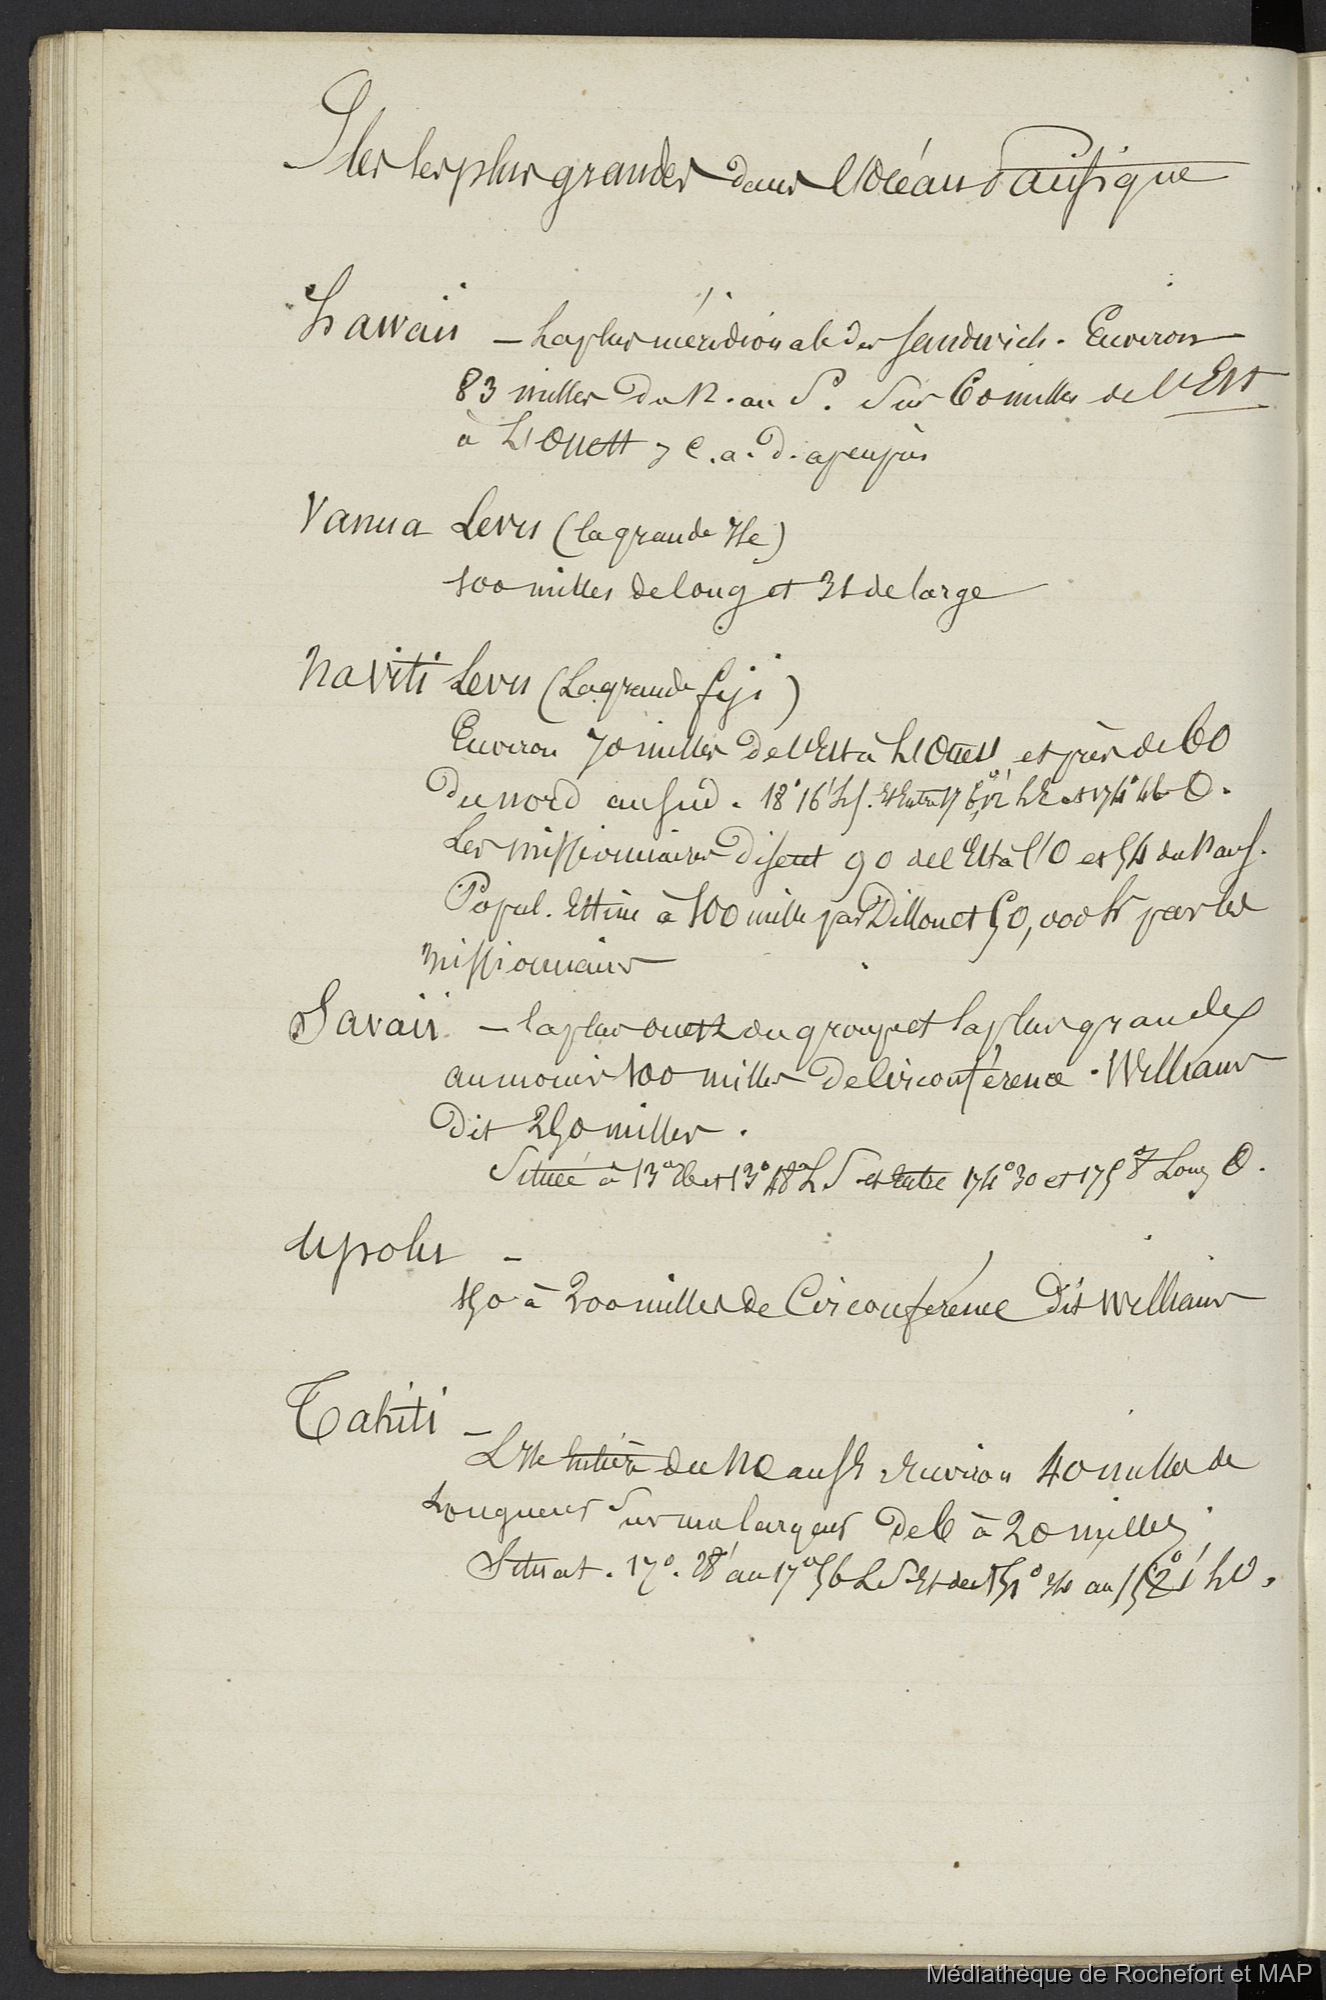 Iles les plus grandes dans l'Océan Pacifique
Hawaii — La plus méridionale des Sandwich. Environ
83 milles du N. au S. sur 60 milles de l'Est
à L'Ouest, c.a.d. apeuprès
Vanua Levu (la grande Ile)
100 milles de long et 31 de large
Na Viti Levu (La grande fiji)
Environ 70 milles de l'Est à L'Ouest et près de 60
du nord au sud. 18° 16' L S. Et Entre 17 L E et 174° 46 O.
Les missionnaires disent 90 de l'Est à l'O et 54 du N au S.
Popul. Estim à 100 mille par Dillon et 50,000 h par les
missionnaires
Savaii — la plus ouest du groupe et la plus grande
au moins 100 milles de circonférence. Williams
dit 250 milles.
Située à 13° 26 et 13° 48 L S et Entre 174° 30 et 175° 8 Long O.
Upolu —
150 à 200 milles de Circonférence Dit Williams
Tahiti —
L'Ile Entière du NO au SE Environ 40 milles de
Longueur sur une largeur de 6 à 20 milles
Situat. 17°. 28' au 17° 56 L S Et du 151° 24 au 152° 1' L O.
Médiathèque de Rochefort et MAP